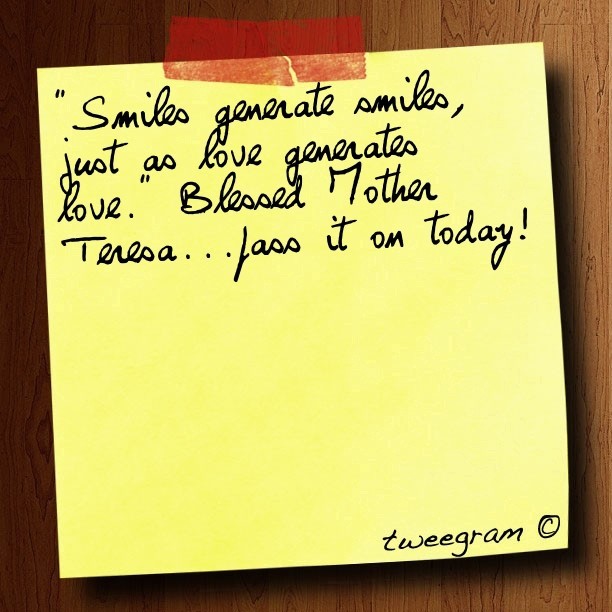 "Smiles generate smiles,
just as love generates
love." Blessed Mother
Teresa...pass it on today!
tweegram ©